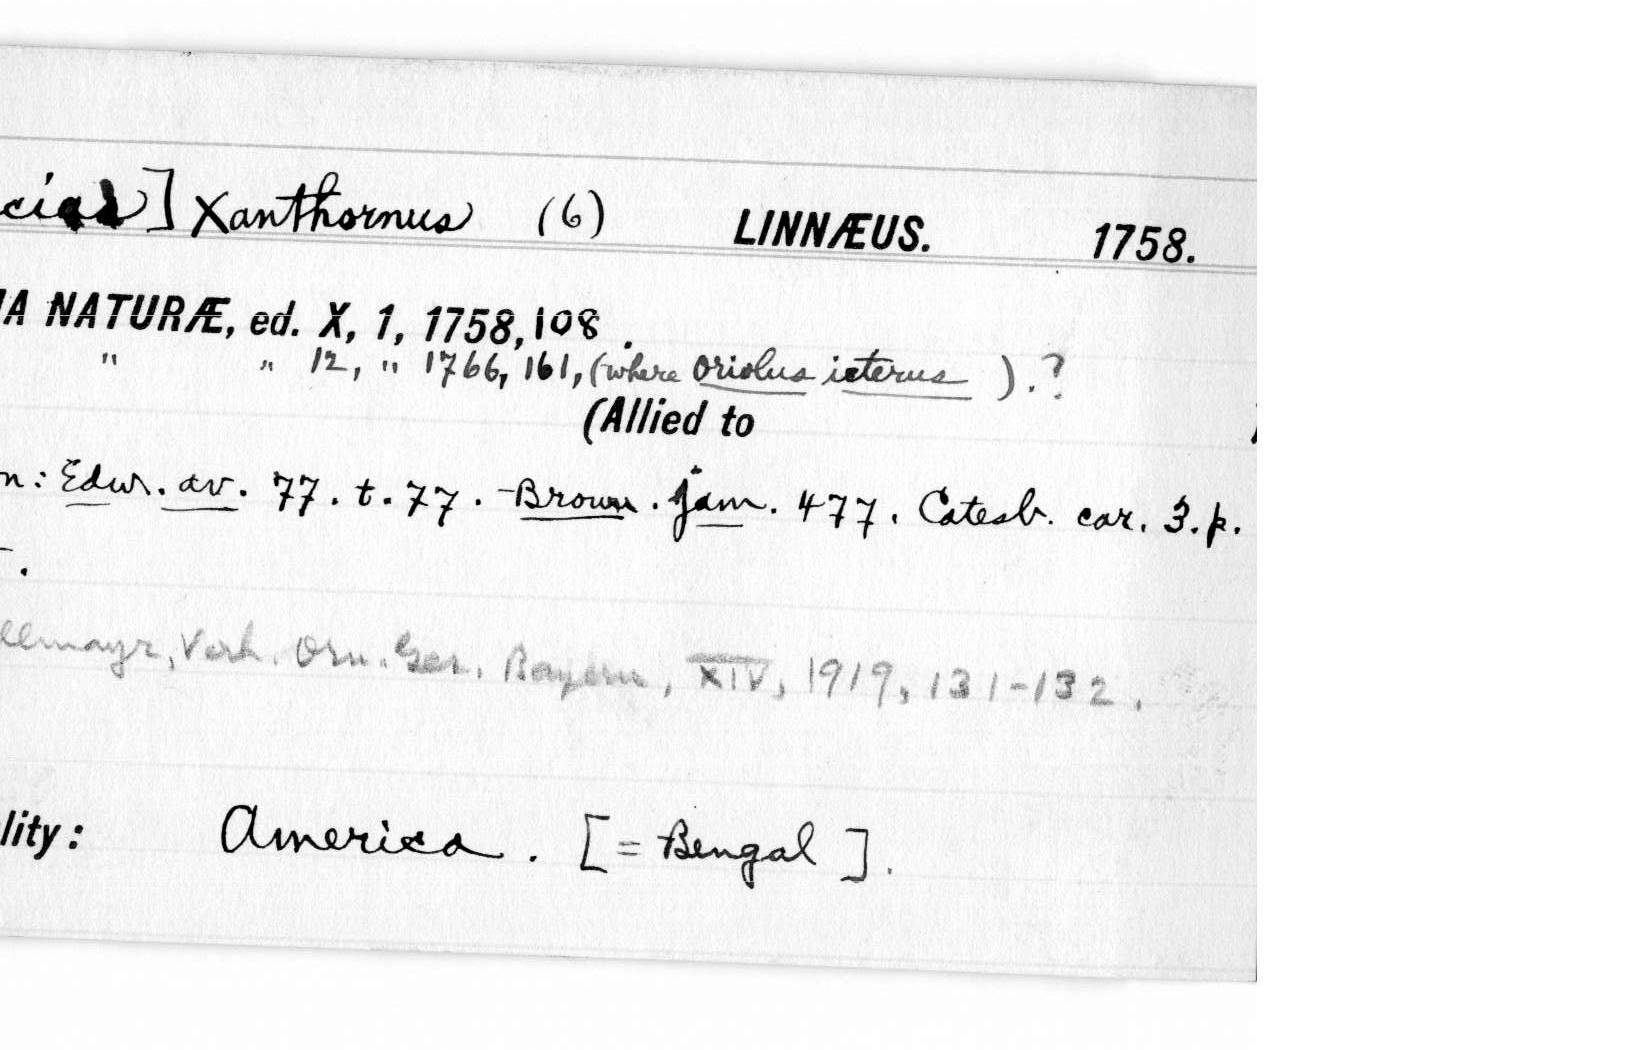 ] Xanthornus (6) LINNÆUS. 1758.
IA NATURÆ, ed. X, 1, 1758, 108.
" " 12, " 1766, 161, (where Oriolus icterus ).?
(Allied to )
n: Edw. av. 77. t. 77. Brown. jam. 477. Catesb. car. 3. p.
.
llmayr, Verh. Orn. Ges. Bayern, XIV, 1919, 131-132.
lity: America. [= Bengal].